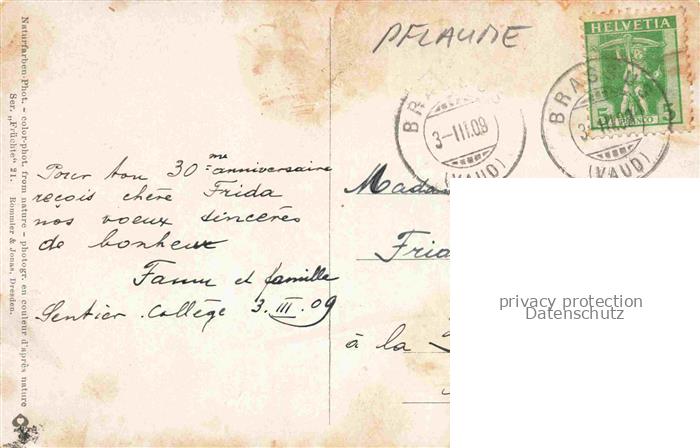 Naturfarben-Phot. - color-phot. from nature - photogr. en couleur d'après nature
Ser. „Früchte" 21. Rommler & Jonas, Dresden.
PFLAUME
HELVETIA
5 5
FRANCO
BRASSUS
3-III.09
(VAUD)
BRASSUS
(VAUD)
Pour ton 30me anniversaire
reçois chère Frida
nos voeux sincères
de bonheur
Fanny et famille
Sentier. Collège 3. III. 09
Mada
Frid
à la
privacy protection
Datenschutz